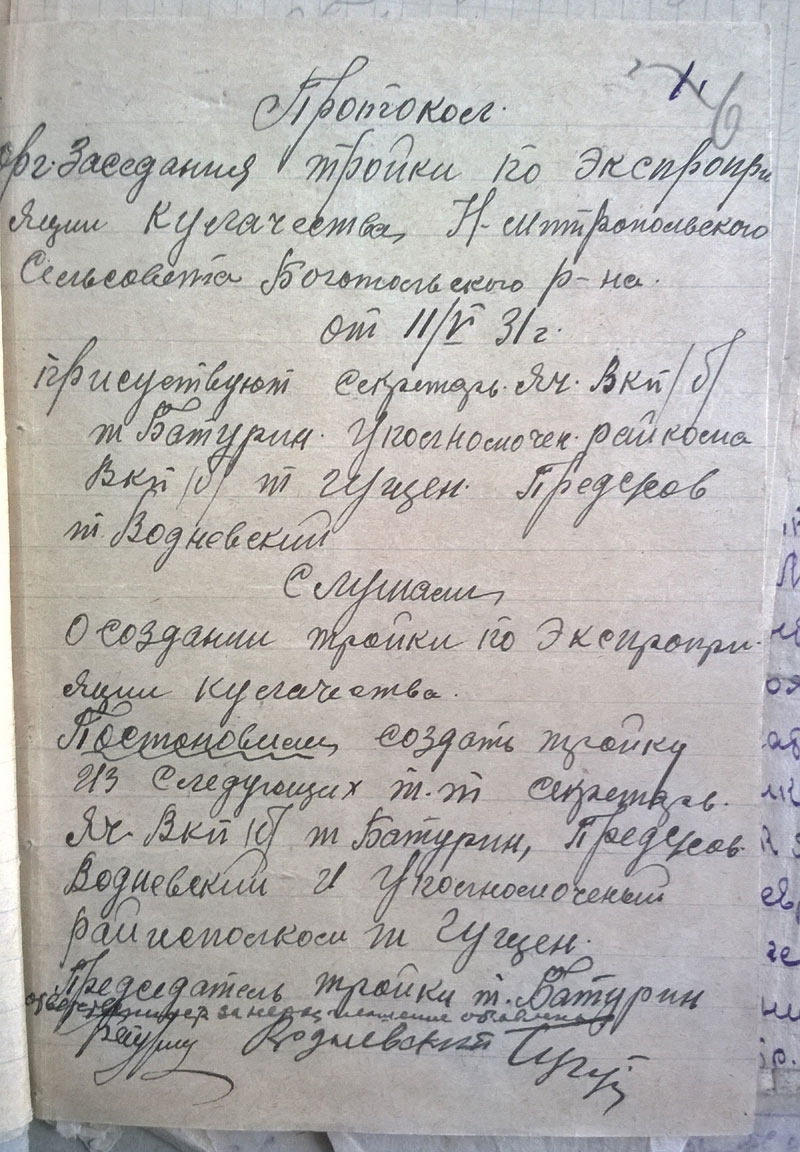 1. 6
Протокол.
Орг. Заседания тройки по Экспропри
яции Кулачества, Н-Митропольского
Сельсовета Боготольского р-на.
от 11/V 31 г.
присуствуют секретарь. яч. Вкп/б/
т Батурин. Уполномочен. райкома
Вкп/б/ т Гущен. Предсхов
т. Водневский
Слушали,
О создании тройки по Экспропри-
яции кулачества.
Постоновили, создать тройку
из следующих т.т секретарь.
Яч Вкп/б/ т Батурин, Предсхов
Водневский и Уполномоченый
райисполком т Гущен.
Председатель тройки т. Батурин
за неразглошение
Водневский